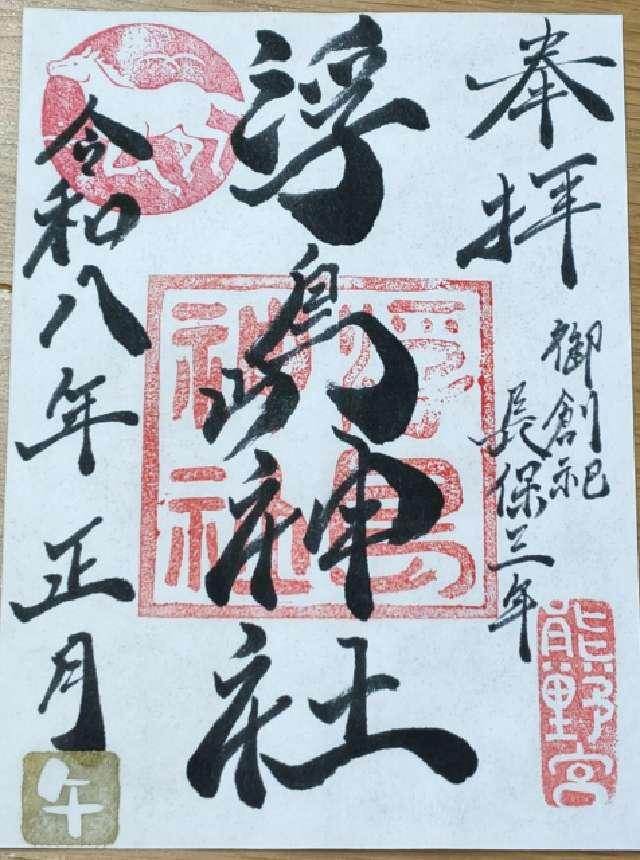 奉拝
御創祀
長保三年
熊野宮
浮嶋神社
浮島
神社
令和八年 正月
午